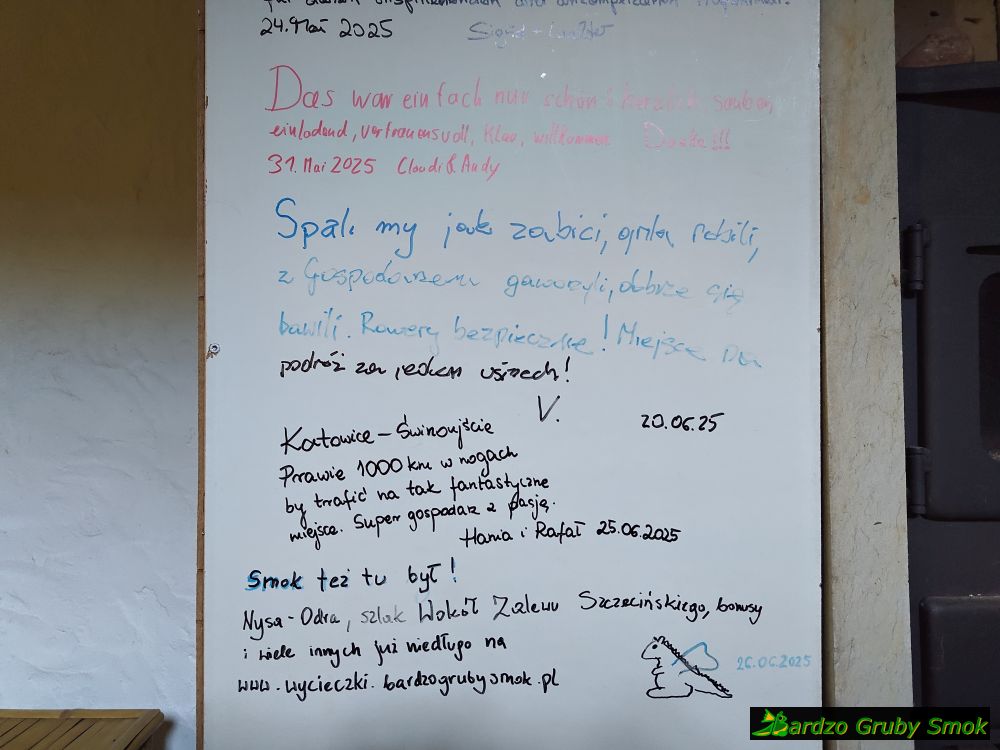 24. Mai 2025
Das war einfach nur schön! herzlich, sauber,
einladend, vertrauensvoll, klar, willkommen Danke!!!
31. Mai 2025 Claudi & Andy
Spali my jak zabici, grila robili,
z Gospodarzem gaworzyli, dobrze się
bawili. Rowery bezpieczne! Miejsce na
podróż za jeden uśmiech!
V. 20.06.25
Katowice - Świnoujście
Prawie 1000 km w nogach
by trafić na tak fantastyczne
miejsce. Super gospodarz z pasją.
Hania i Rafał 25.06.2025
Smok też tu był!
Nysa - Odra, szlak Wokół Zalewu Szczecińskiego, bonusy
i wiele innych już niedługo na
www.wycieczki.bardzogrubysmok.pl
26.06.2025
Bardzo Gruby Smok